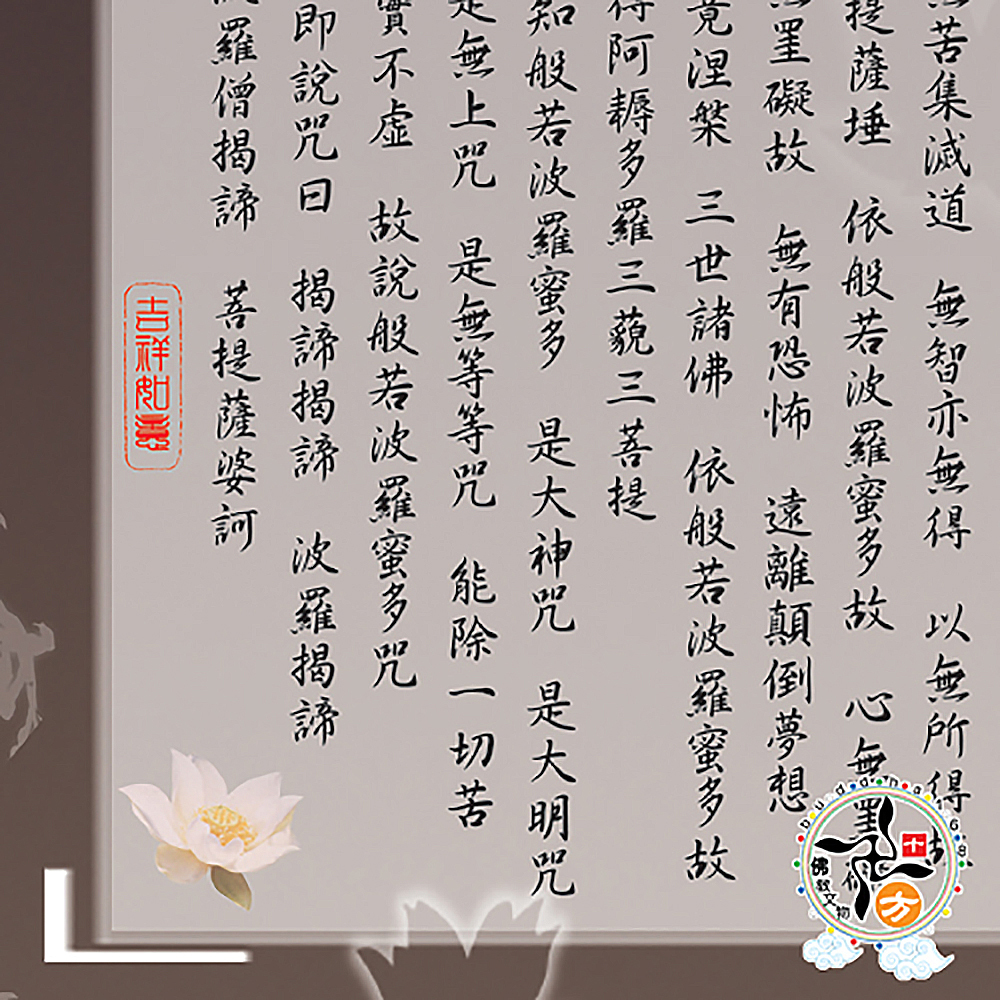 苦集滅道 無智亦無得 以無所得
提薩埵 依般若波羅蜜多故 心無罣
罣礙故 無有恐怖 遠離顛倒夢想
竟涅槃 三世諸佛 依般若波羅蜜多故
得阿耨多羅三藐三菩提
知般若波羅蜜多 是大神咒 是大明咒
是無上咒 是無等等咒 能除一切苦
實不虛 故說般若波羅蜜多咒
即說咒曰 揭諦揭諦 波羅揭諦
羅僧揭諦 菩提薩婆訶
吉祥如意
十方
佛教文物